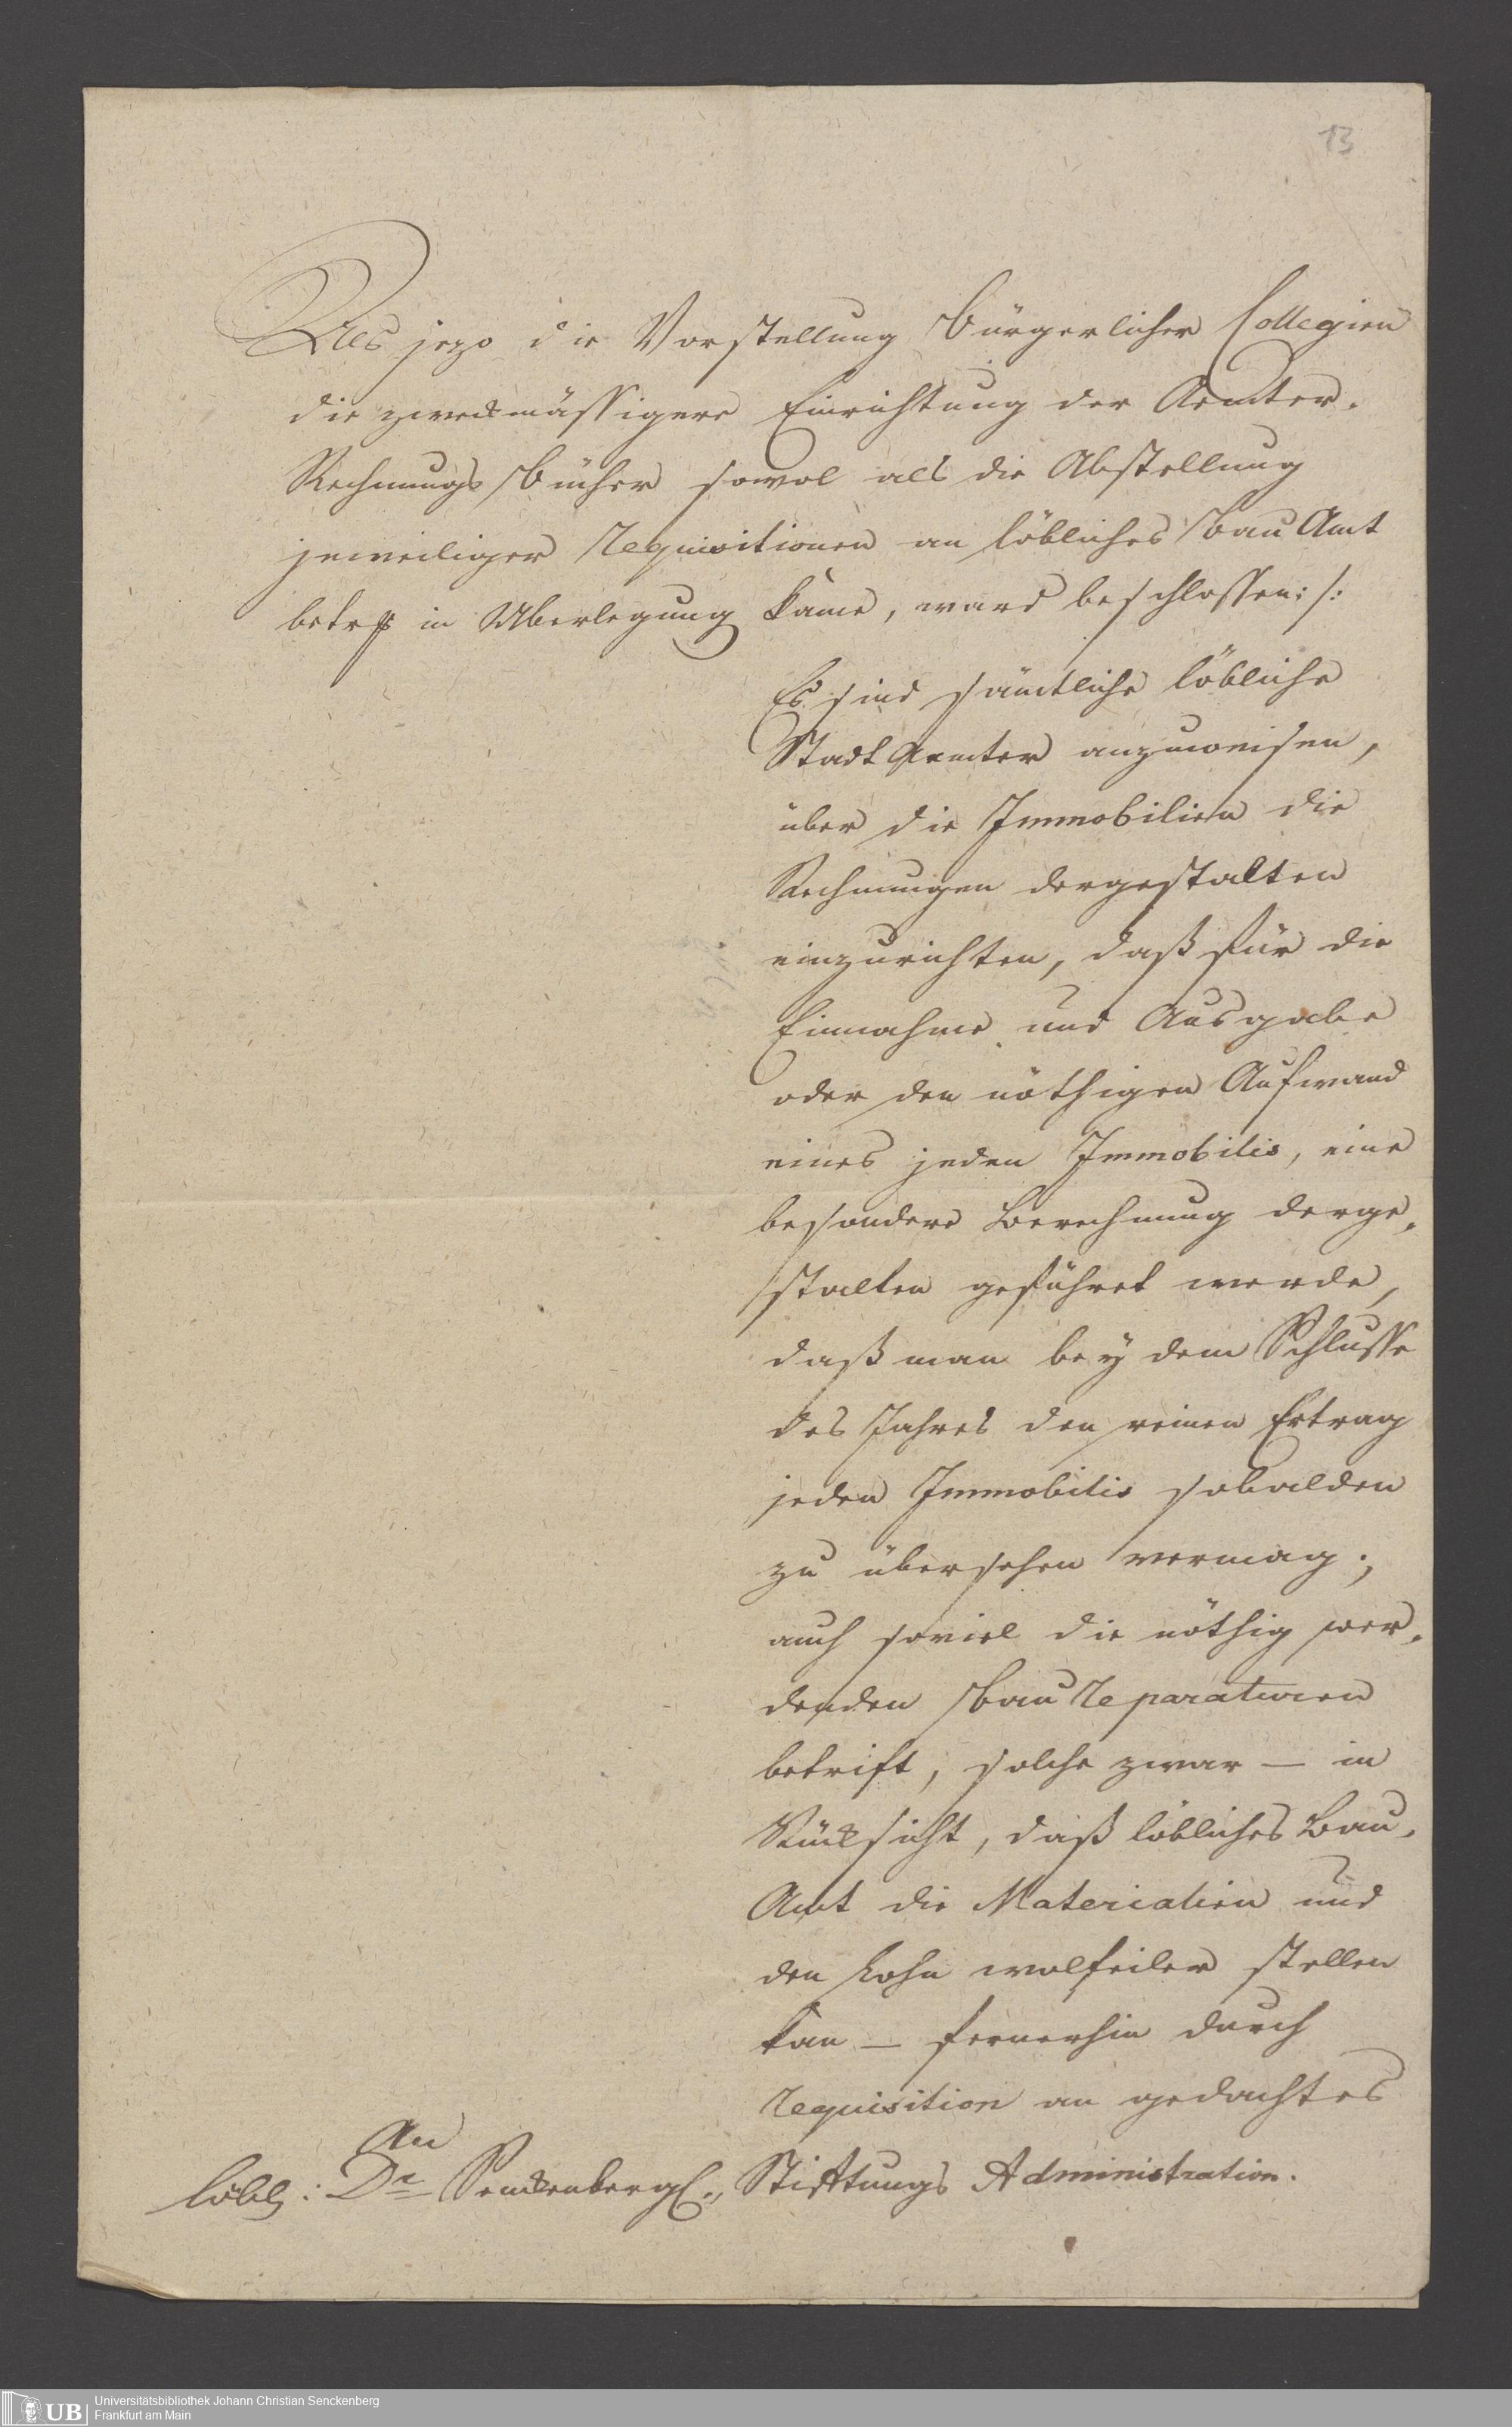 13
Als jezo die Vorstellung bürgerlicher Collegien
die zweckmässigere Einrichtung der Aemter-
Rechnungs Bücher sowol als die Abstellung
jeweiliger Requisitionen an löbliches Bau Amt
betrf in Uberlegung käme, ward beschlossen:/:
Es sind sämtliche löbliche
Stadt Aemter anzuweisen,
über die Immobilien die
Rechnungen dergestalten
einzurichten, daß für die
Einnahme und Ausgabe
oder den nöthigen Aufwand
eines jeden Immobilis, eine
besondere Berechnung derge-
stalten geführet werde,
daß man bey dem Schlusse
des Jahres den reinen Ertrag
jeden Immobilis sobalden
zu übersehen vermag;
auch soviel die nöthig wer-
denden Bau Reparaturen
betrift, solche zwar — in
Rücksicht, daß löbliches Bau-
Amt die Materialien und
den Lohn wolfeiler stellen
kan — fernerhin durch
Requisition an gedachtes
An
Löbl: Dr Senckenbergl. Stiftungs Administration.
Universitätsbibliothek Johann Christian Senckenberg
Frankfurt am Main
UB